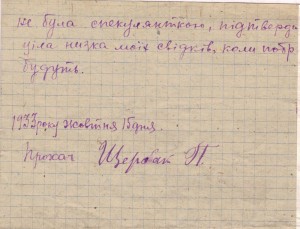 не була спекулянткою, підтверди
ціла низка моїх свідків, коли потр
будуть.
1933 року жовтня 15 дня.
Прохач Щербак П.